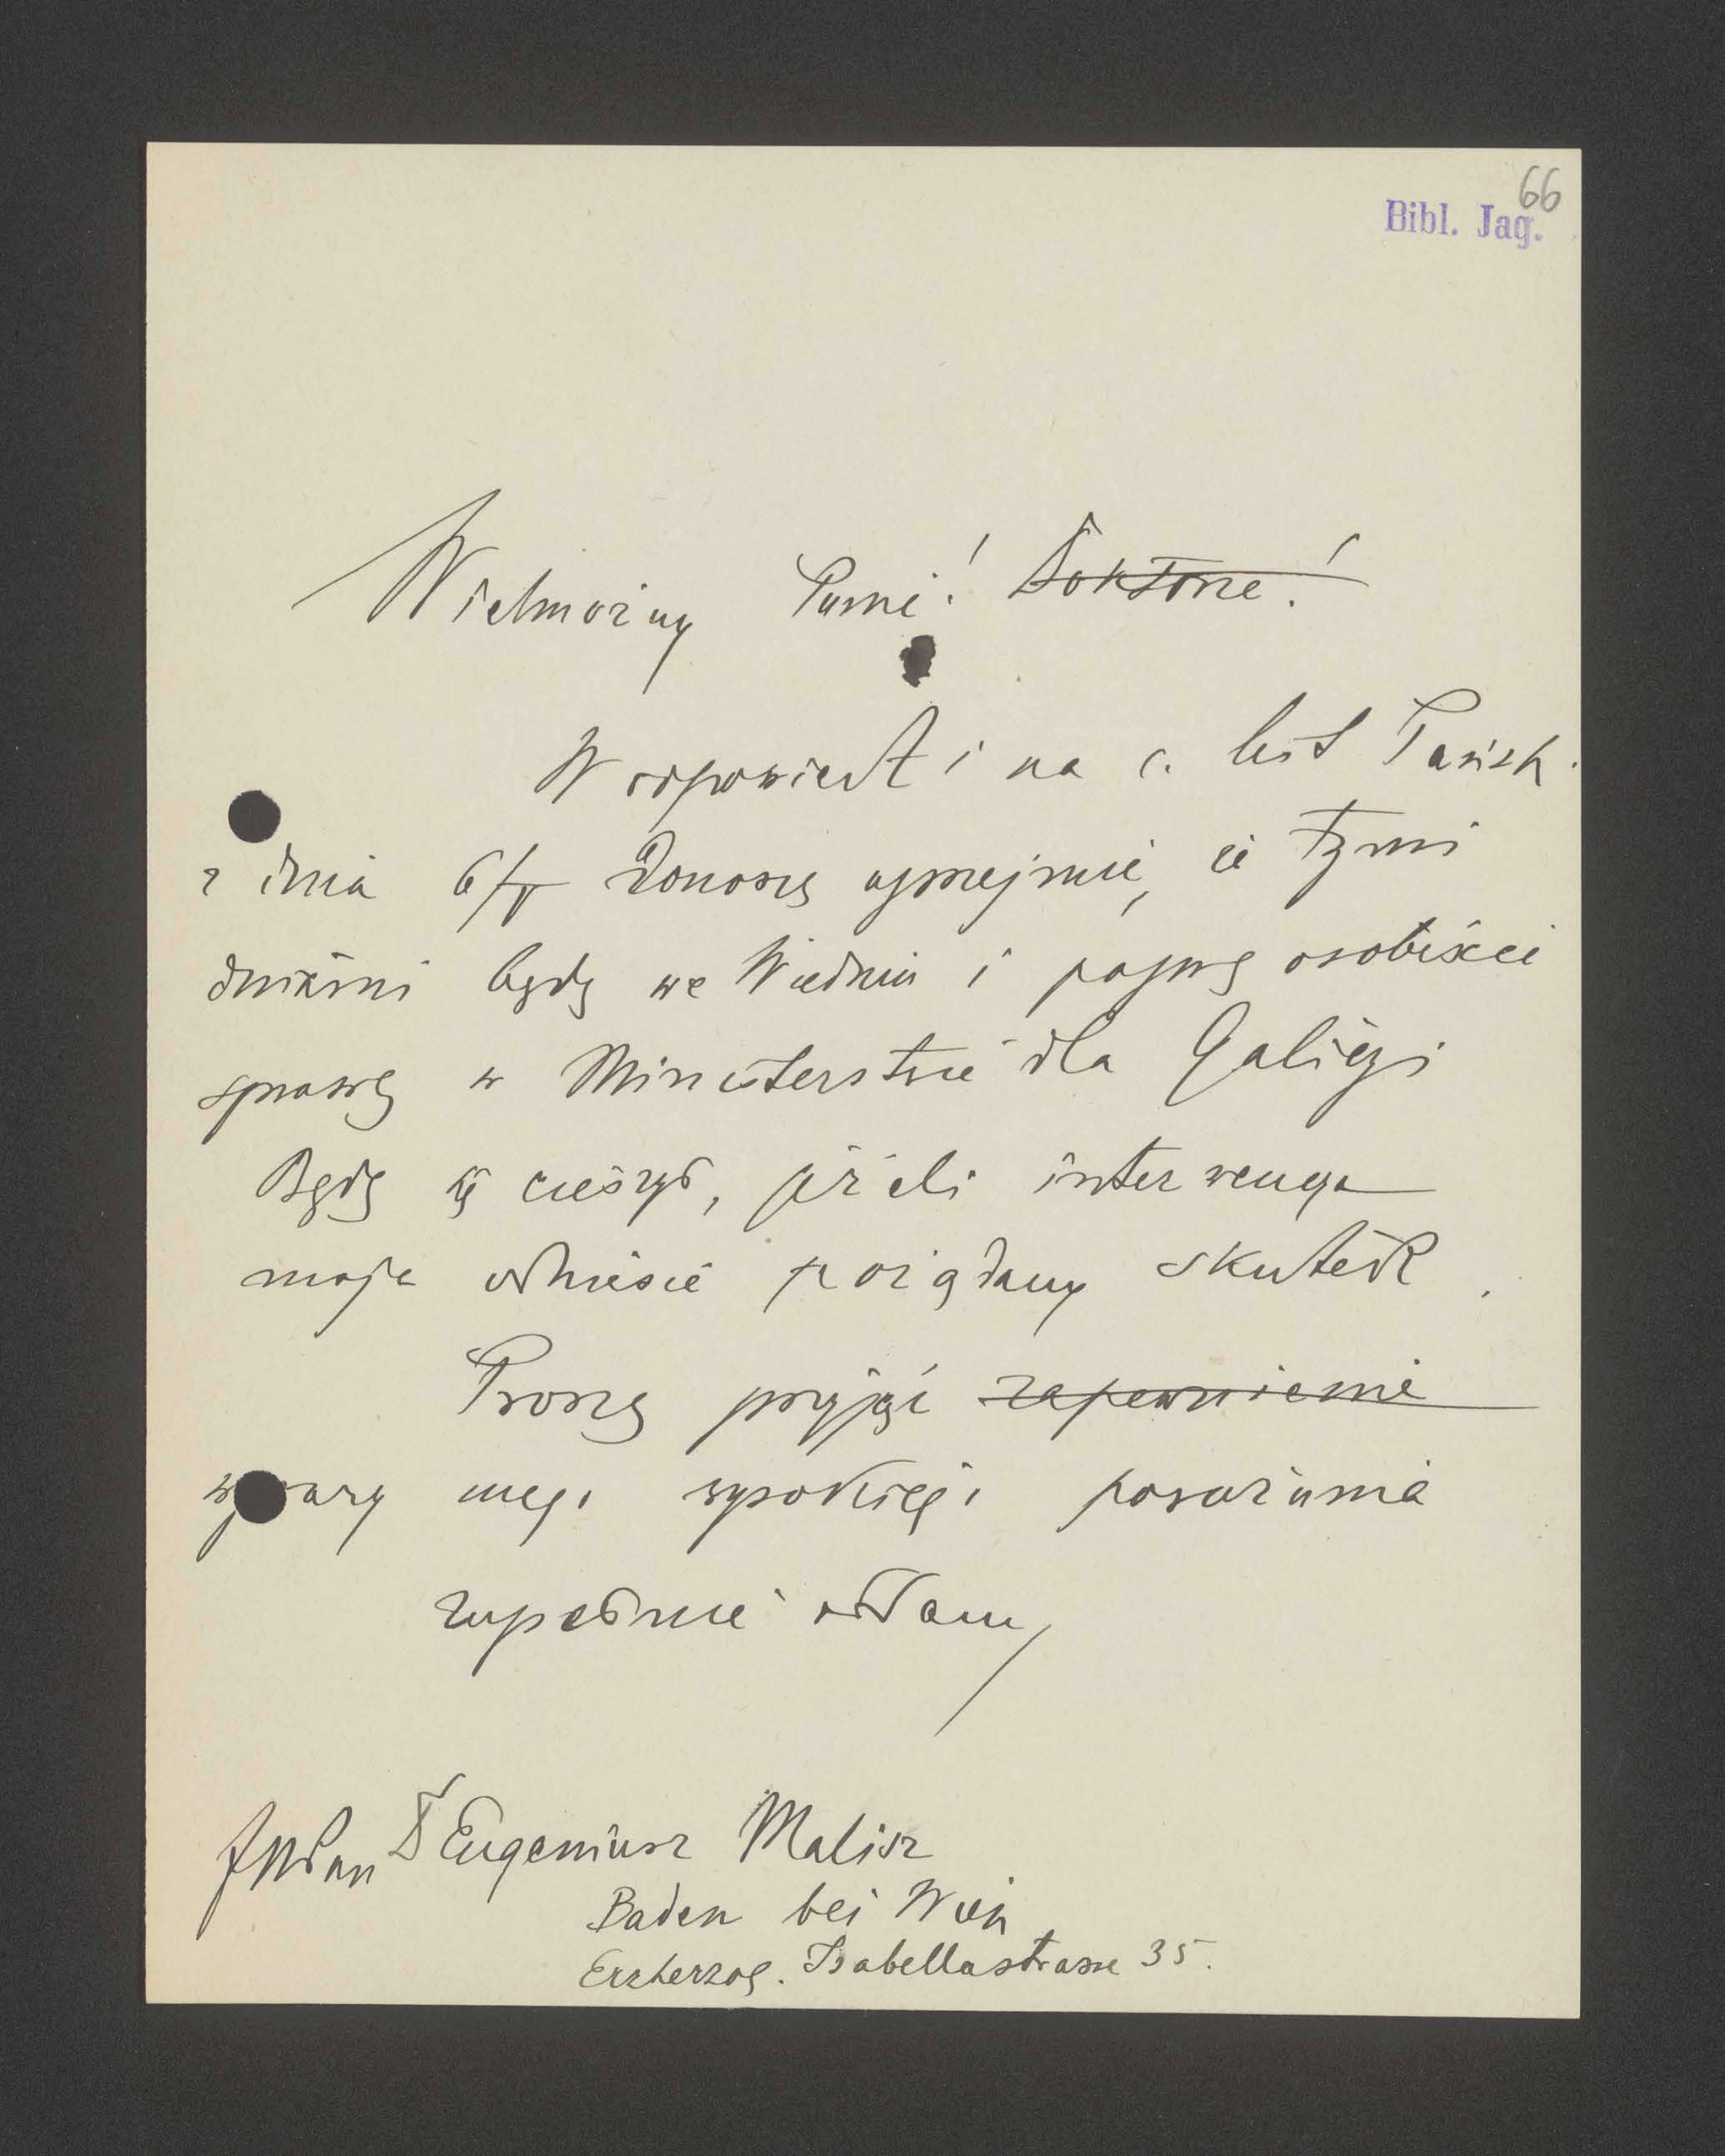 66
Bibl. Jag.
Wielmożny Panie! Doktorze!
W odpowiedzi na c. list Pański
z dnia 6/V donoszę uprzejmie, że tymi
dniami będę we Wiedniu i poprę osobiście
sprawę w Ministerstwie dla Galicyi
Będę się cieszył, jeżeli interwencya
moja odniesie pożądany skutek.
Proszę przyjąć zapewnienie
wyrazy mego wysokiego poważania
zupełnie oddany
JWPan Dr Eugeniusz Malisz
Baden bei Wien
Erzherzog. Isabellastrasse 35.